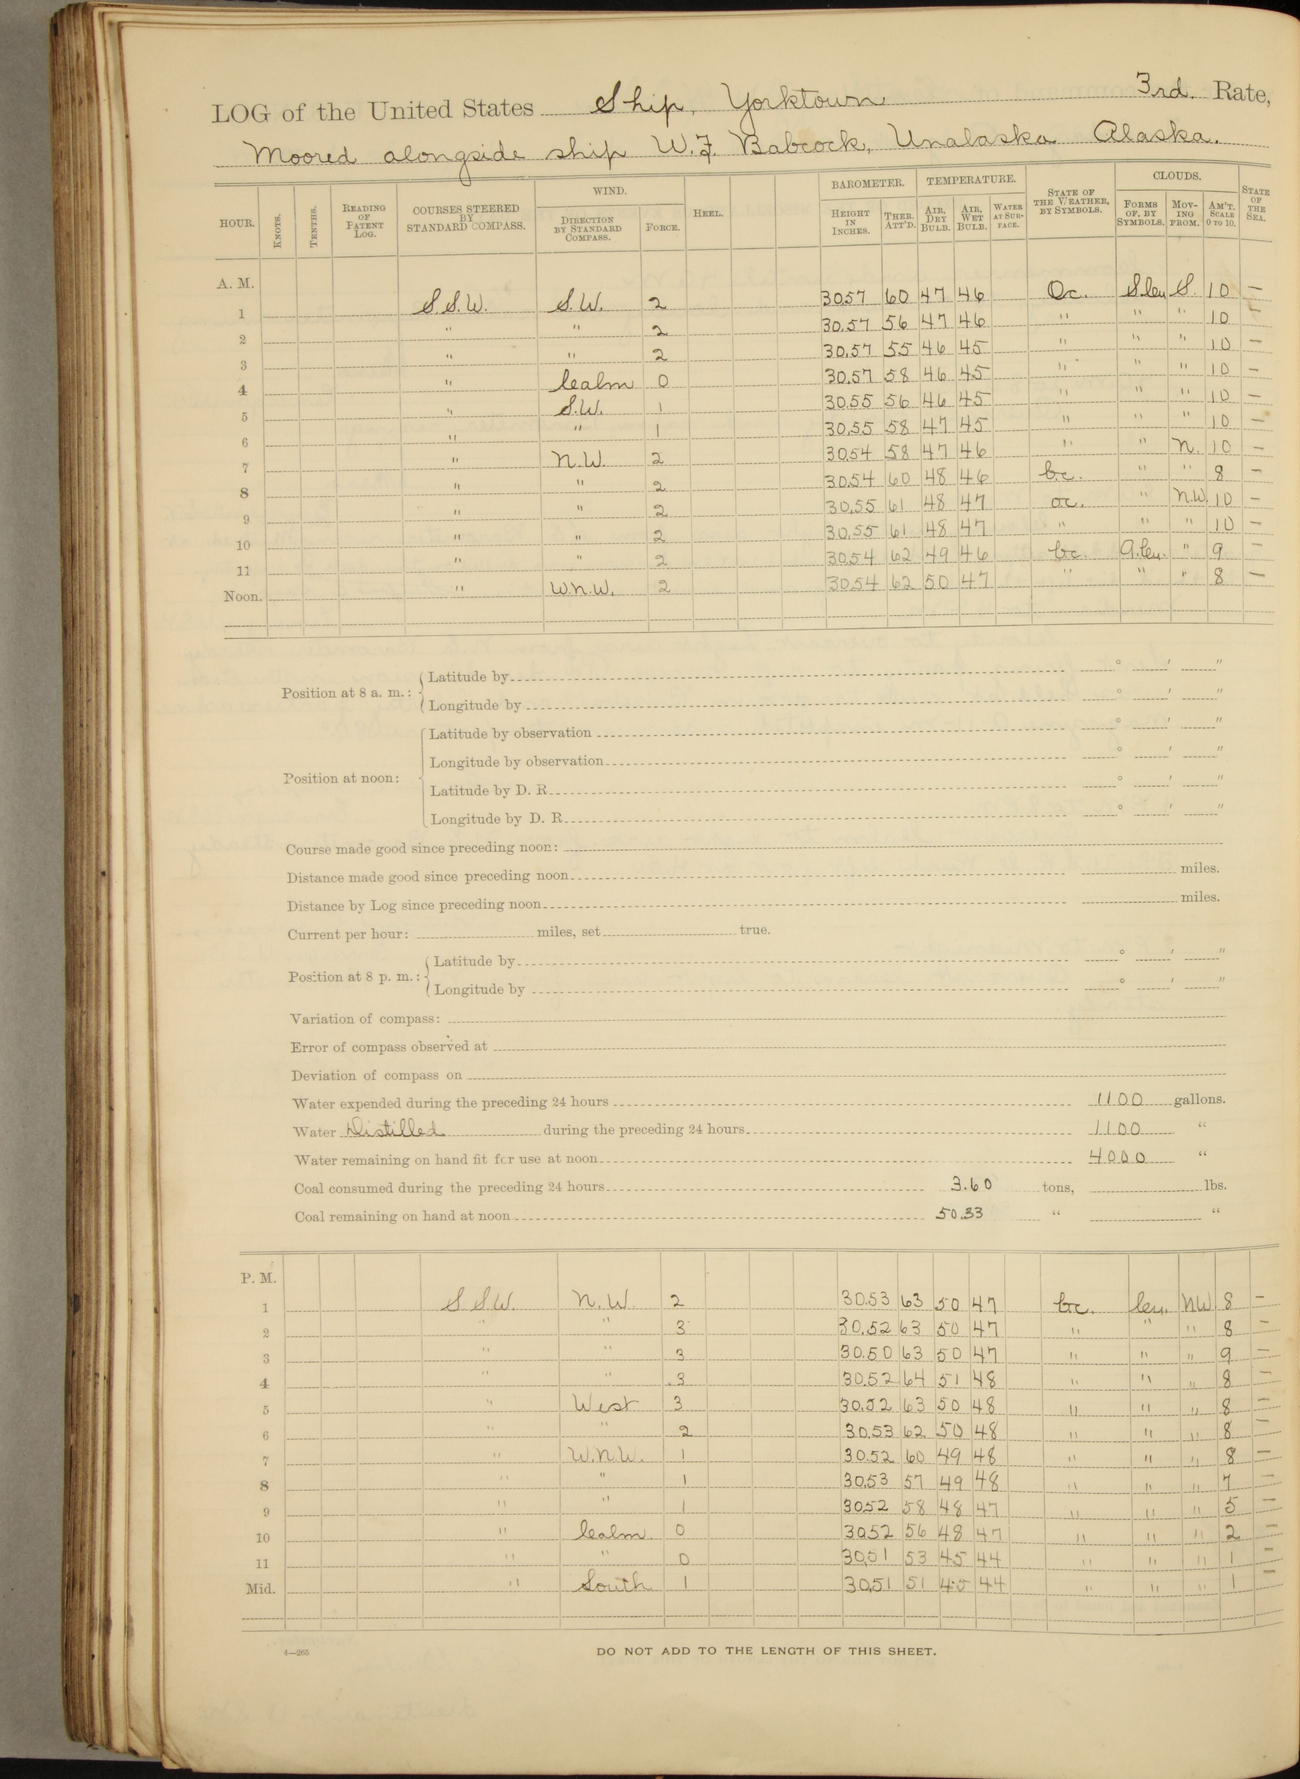 LOG of the United States Ship, Yorktown 3rd. Rate,
Moored alongside ship W.F. Babcock, Unalaska Alaska.
HOUR. KNOTS. TENTHS. READING OF PATENT LOG. COURSES STEERED BY STANDARD COMPASS. WIND. DIRECTION BY STANDARD COMPASS. FORCE. HEEL. BAROMETER. HEIGHT IN INCHES. THER. ATT'D. TEMPERATURE. AIR, DRY BULB. AIR, WET BULB. WATER AT SURFACE. STATE OF THE WEATHER, BY SYMBOLS. CLOUDS. FORMS OF, BY SYMBOLS. MOVING FROM. AM'T. SCALE 0 TO 10. STATE OF THE SEA.
A. M.
1 S.S.W. S.W. 2 30.57 60 47 46 Oc. S.cu S. 10 —
2 " " 2 30.57 56 47 46 " " " 10 —
3 " " 2 30.57 55 46 45 " " " 10 —
4 " Calm 0 30.57 58 46 45 " " " 10 —
5 " S.W. 1 30.55 56 46 45 " " " 10 —
6 " " 1 30.55 58 47 45 " " " 10 —
7 " N.W. 2 30.54 58 47 46 " " N. 10 —
8 " " 2 30.54 60 48 46 b.c. " " 8 —
9 " " 2 30.55 61 48 47 oc. " N.W. 10 —
10 " " 2 30.55 61 48 47 " " " 10 —
11 " " 2 30.54 62 49 46 bc. A.cu. " 9 —
Noon. " W.N.W. 2 30.54 62 50 47 " " " 8 —
Position at 8 a. m.: Latitude by ° ′ ″
Longitude by ° ′ ″
Position at noon: Latitude by observation ° ′ ″
Longitude by observation ° ′ ″
Latitude by D. R. ° ′ ″
Longitude by D. R. ° ′ ″
Course made good since preceding noon:
Distance made good since preceding noon miles.
Distance by Log since preceding noon miles.
Current per hour: miles, set true.
Position at 8 p. m.: Latitude by ° ′ ″
Longitude by ° ′ ″
Variation of compass:
Error of compass observed at
Deviation of compass on
Water expended during the preceding 24 hours 1100 gallons.
Water Distilled during the preceding 24 hours 1100 "
Water remaining on hand fit for use at noon 4000 "
Coal consumed during the preceding 24 hours 3.60 tons, lbs.
Coal remaining on hand at noon 50.33 " "
P. M.
1 S S.W. N.W. 2 30.53 63 50 47 bc. cu. NW 8 —
2 " " 3 30.52 63 50 47 " " " 8 —
3 " " 3 30.50 63 50 47 " " " 9 —
4 " " 3 30.52 64 51 48 " " " 8 —
5 " West 3 30.52 63 50 48 " " " 8 —
6 " " 2 30.53 62 50 48 " " " 8 —
7 " W.N.W. 1 30.52 60 49 48 " " " 8 —
8 " " 1 30.53 57 49 48 " " " 7 —
9 " " 1 30.52 58 48 47 " " " 5 —
10 " Calm 0 30.52 56 48 47 " " " 2 —
11 " " 0 30.51 53 45 44 " " " 1 —
Mid. " South 1 30.51 51 45 44 " " " 1 —
4—265 DO NOT ADD TO THE LENGTH OF THIS SHEET.